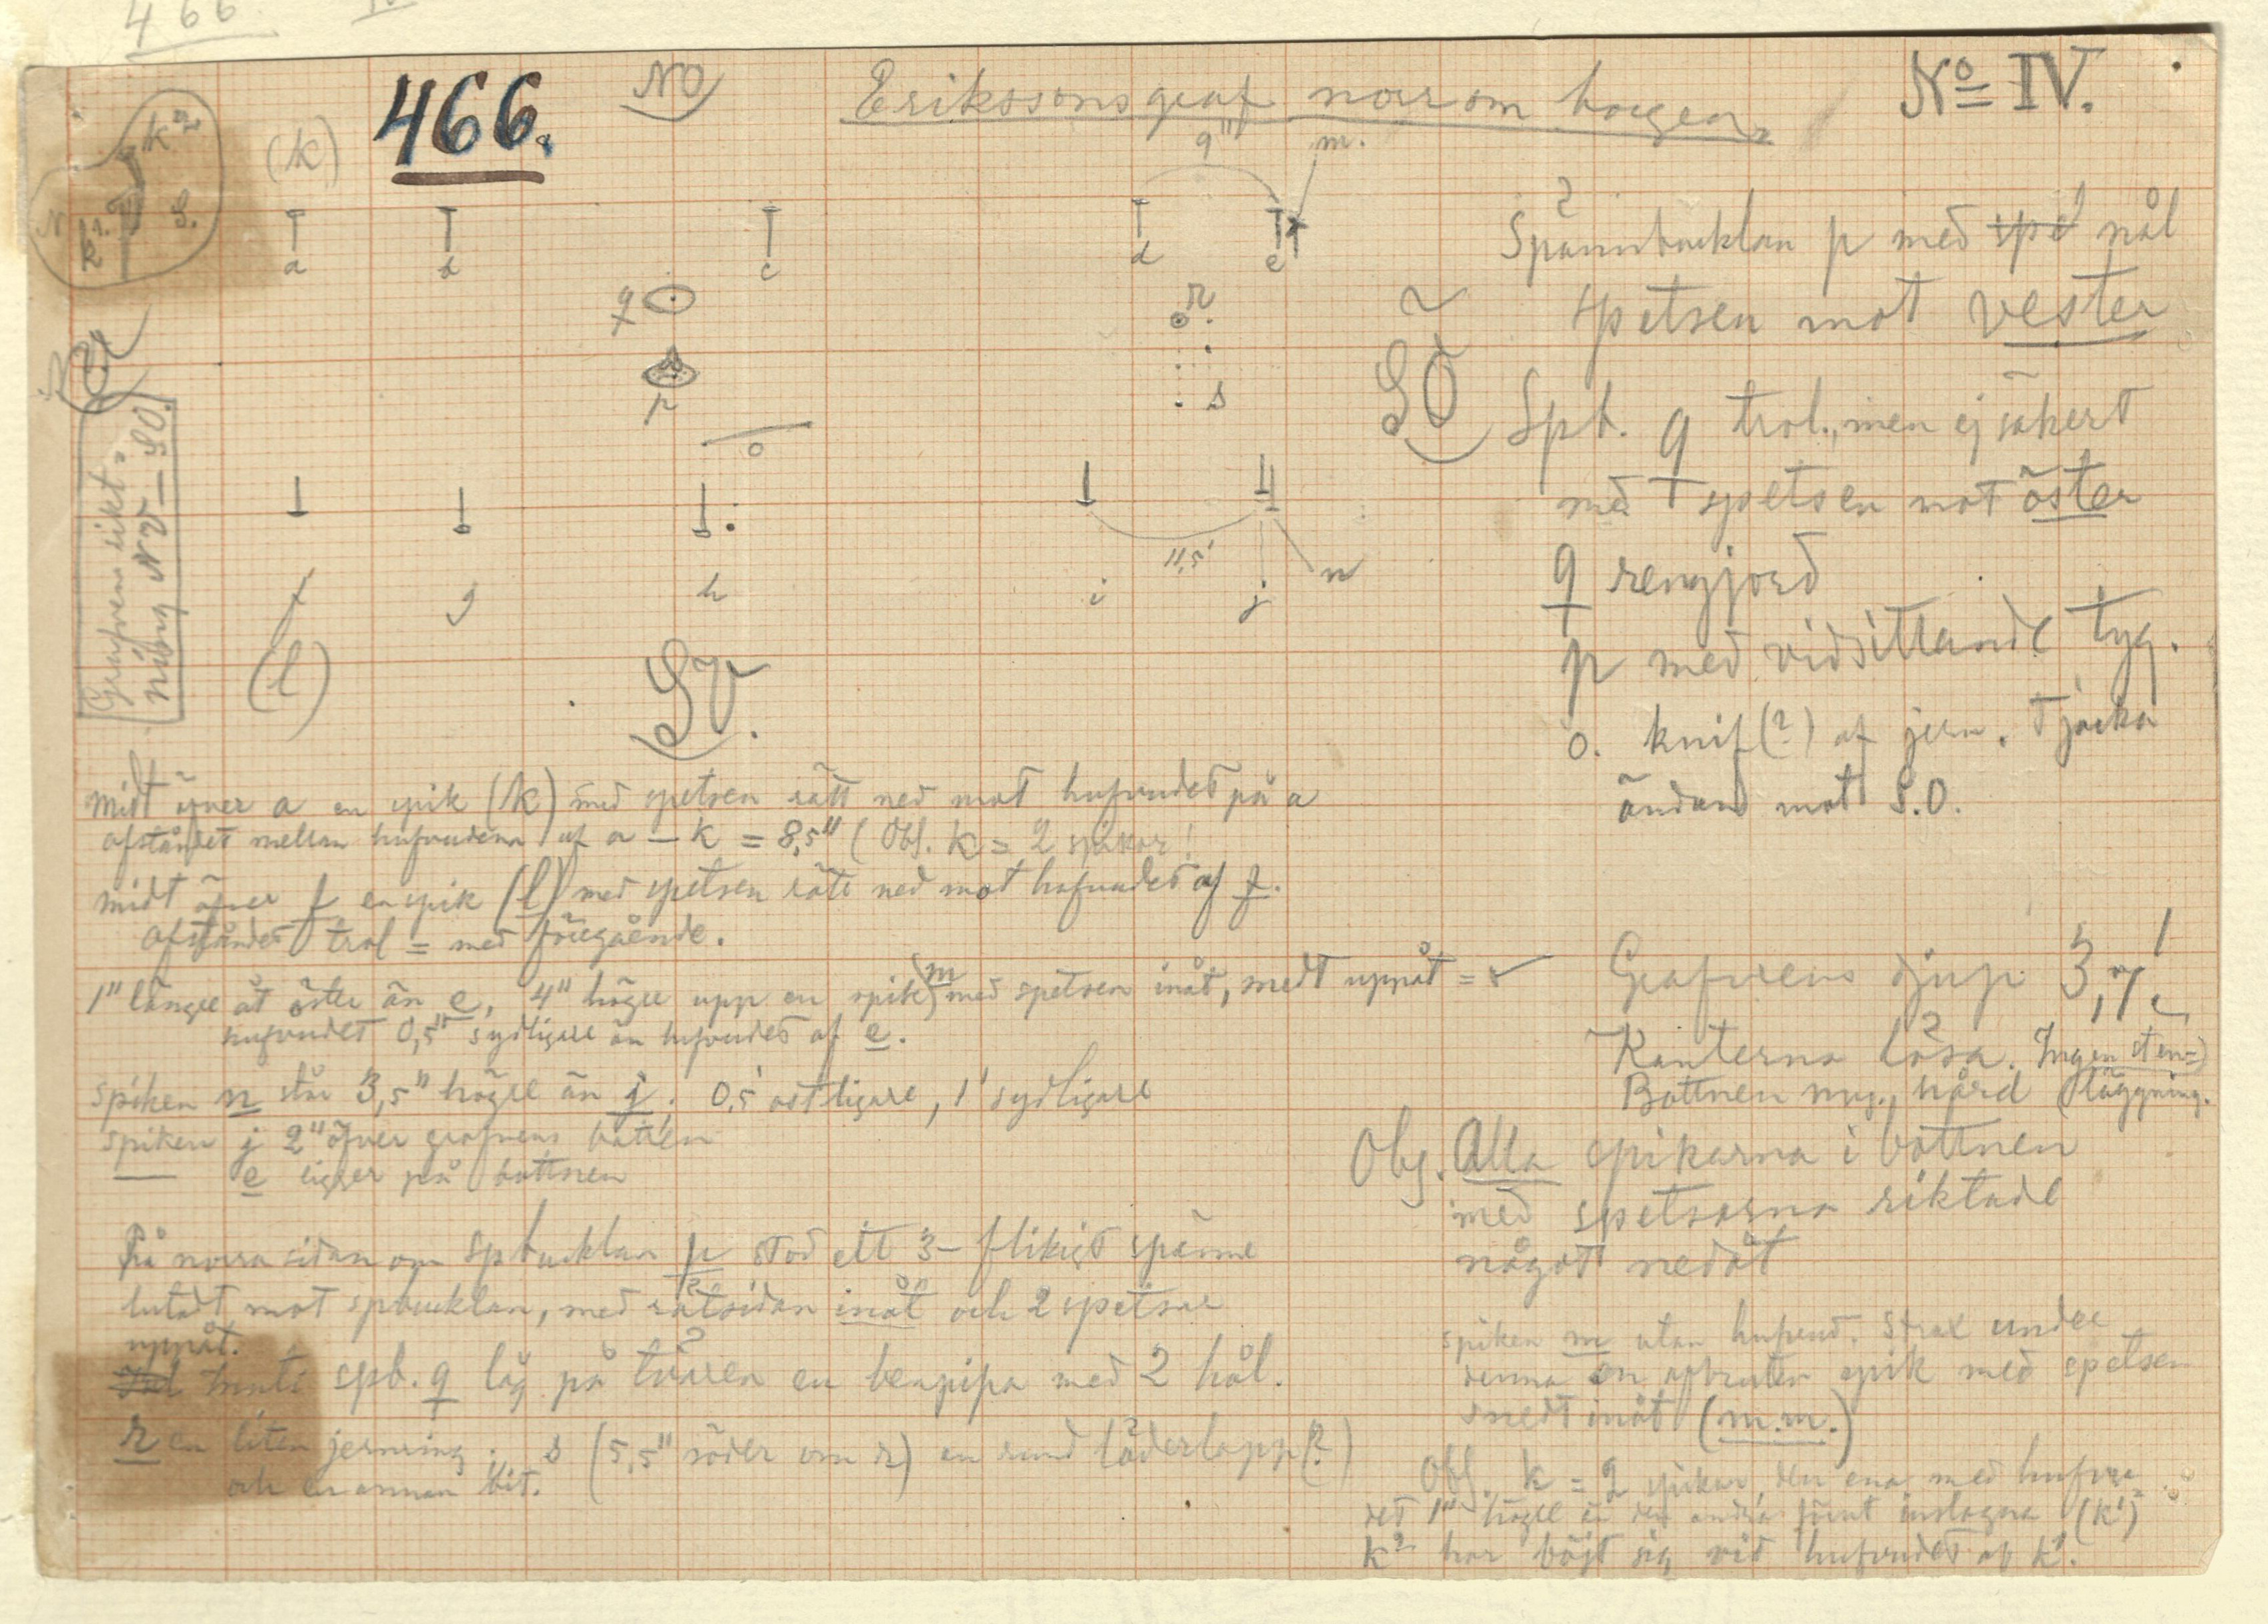 466
466.
NO
Erikssons graf norr om borgen
No IV.
k2
N
k1.
S.
(k)
9"
m.
a
b
c
d
e
q
r
p
s
o
11,5'
n
f
g
h
i
j
(l)
SV.
SO
Grafvens rikt.
NV — SO.
Spännbucklan p med spe nål
spetsen mot vester
Spb. q trol., men ej säkert
med spetsen mot öster
q rengjord
p med vidsittande tyg.
o. knif (?) af jern. Tjocka
ändan mot S.O.
midt öfver a en spik (k) med spetsen rätt ned mot hufvudet på a
afståndet mellan hufvudena af a — k = 8,5" (Obs. k = 2 spikar!
midt öfver f en spik (l) med spetsen rätt ned mot hufvudet af f.
afståndet trol = med föregående.
1" längre åt öster än e, 4" högre upp en spik m med spetsen inåt, snedt uppåt =
hufvudet 0,5" sydligare än hufvudet af e.
spiken n står 3,5" högre än j, 0,5' ostligare, 1' sydligare
spiken j 2" öfver grafvens botten
— e ligger på bottnen
På norra sidan om spbucklan p stod ett 3-flikigt spänne
lutadt mot spbucklan, med rätsidan inåt och 2 spetsar
uppåt.
Invid spb. q låg på tvären en benpipa med 2 hål.
r en liten jernring. s (5,5" söder om r) en rund läderlapp (?)
och en annan bit.
Grafvens djup 3,7'
Kanterna lösa. Ingen sten=
Bottnen myc. hård läggning.
Obs. Alla spikarna i bottnen
med spetsarna riktade
något nedåt
spiken m utan hufvud. Strax under
denna en afbruten spik med spetsen
snedt inåt (m.m.)
Obs. k = 2 spikar, den ena med hufvu=
det 1" högre än den andra inslagna (k1)
k2 har böjt sig vid hufvudet af k1.